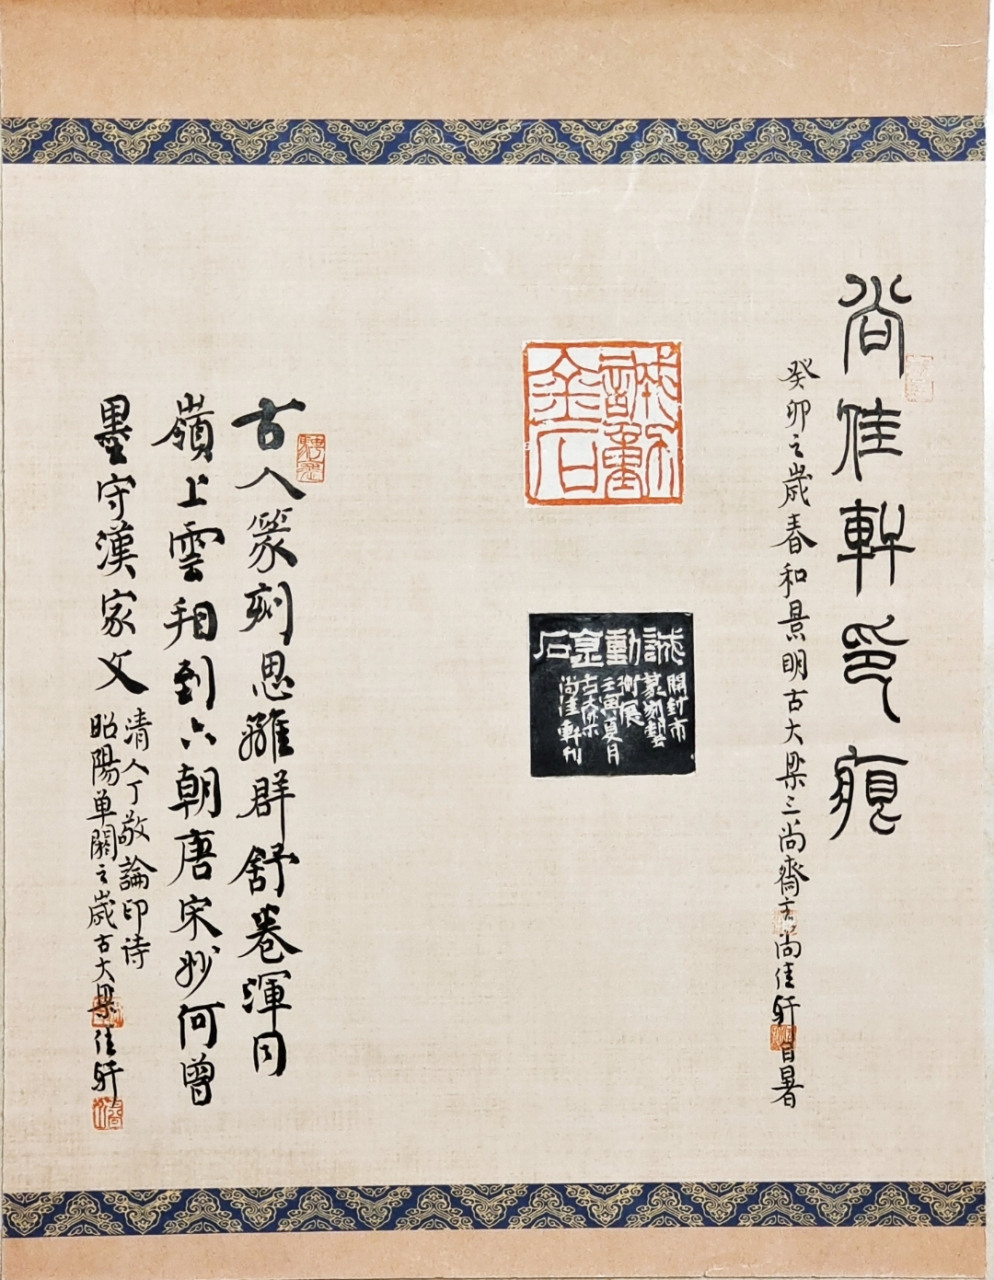 尚佳軒印痕
癸卯之歲春和景明古大梁三尚齋主尚佳轩自署
誠動
金石
誠動金石
開封市
篆刻藝
術展
壬寅夏月
古大梁
尚佳軒刊
古人篆刻思離群舒卷渾同
嶺上雲看到六朝唐宋妙何曾
墨守漢家文
清人丁敬論印诗
昭陽单閼之歲古大梁佳轩